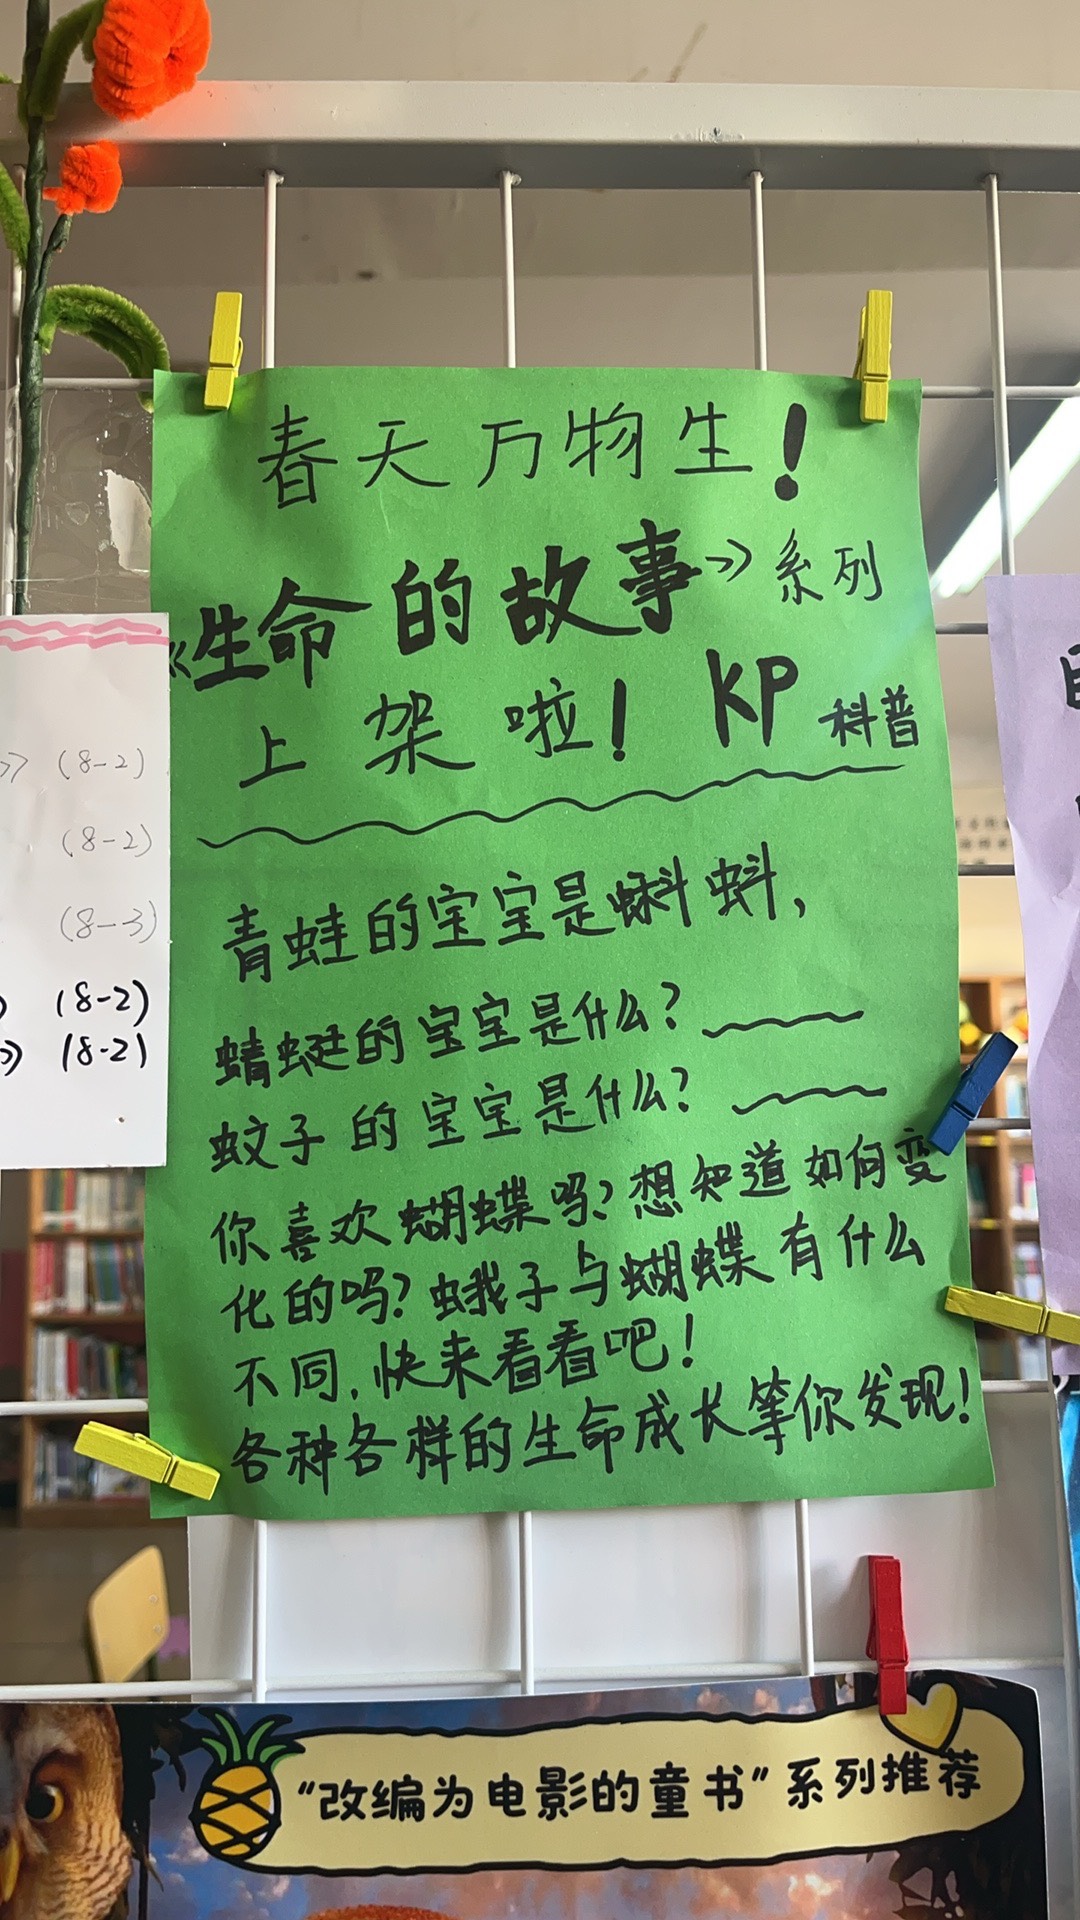 春天万物生！
《生命的故事》系列
上架啦！KP科普
青蛙的宝宝是蝌蚪，
蜻蜓的宝宝是什么？
蚊子的宝宝是什么？
你喜欢蝴蝶吗？想知道如何变
化的吗？蛾子与蝴蝶有什么
不同，快来看看吧！
各种各样的生命成长等你发现！
》（8-2）
（8-2）
（8-3）
》（8-2）
》（8-2）
“改编为电影的童书”系列推荐